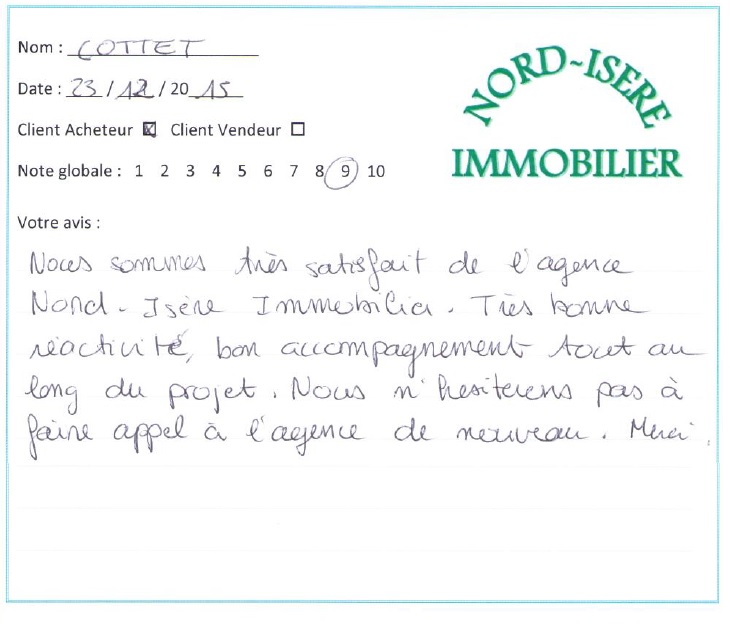 Nom : COTTET
Date : 23 / 12 / 20 15
Client Acheteur ☒ Client Vendeur ☐
Note globale : 1 2 3 4 5 6 7 8 9 10
NORD-ISERE
IMMOBILIER
Votre avis :
Nous sommes très satisfait de l'agence
Nord - Isère Immobilier. Très bonne
réactivité, bon accompagnement tout au
long du projet. Nous n'hesiterons pas à
faire appel à l'agence de nouveau. Merci.